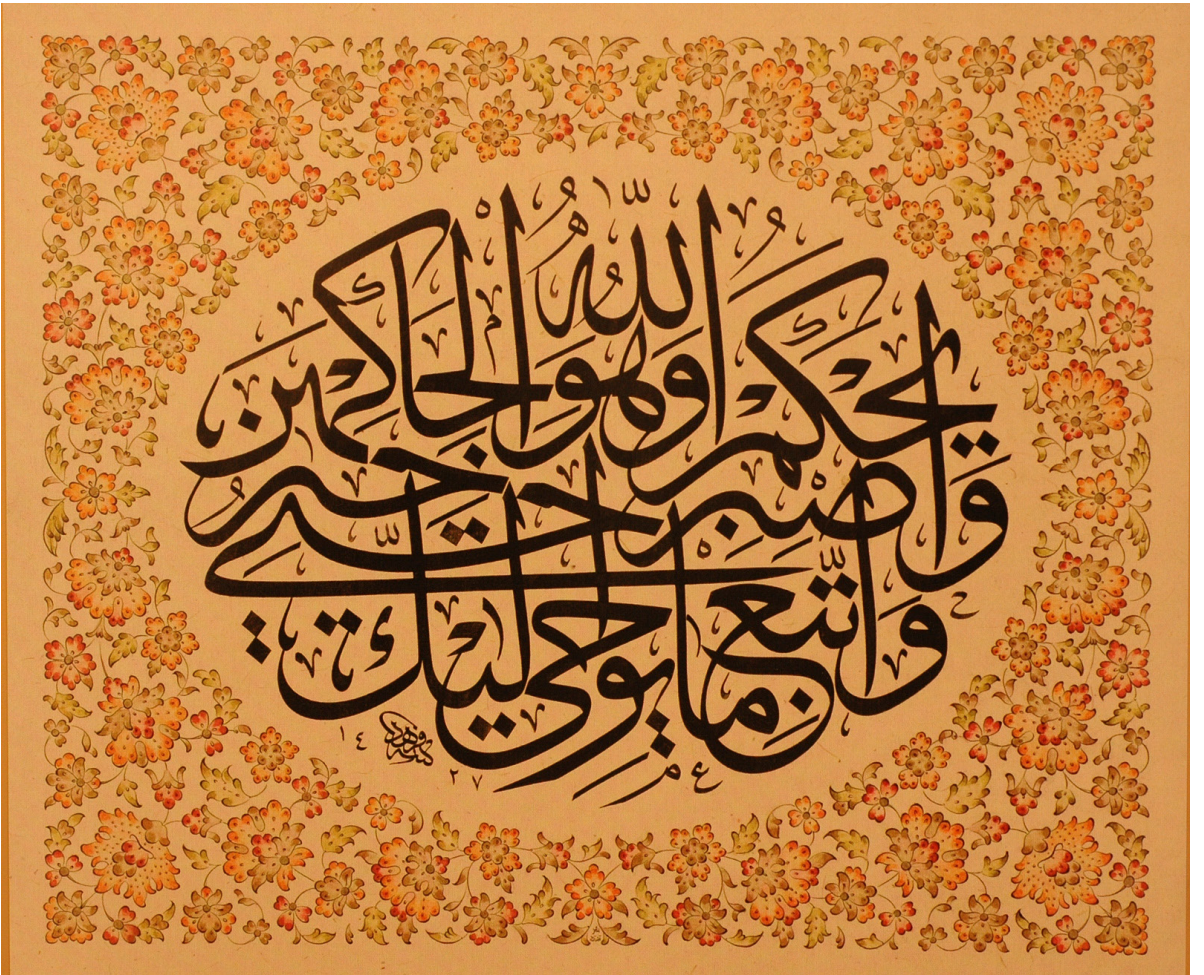 وَاتَّبِعْ مَا يُوحَى إِلَيْكَ
وَاصْبِرْ حَتَّى
يَحْكُمَ اللّٰهُ وَهُوَ خَيْرُ الْحَاكِمِينَ
١٤٢٧